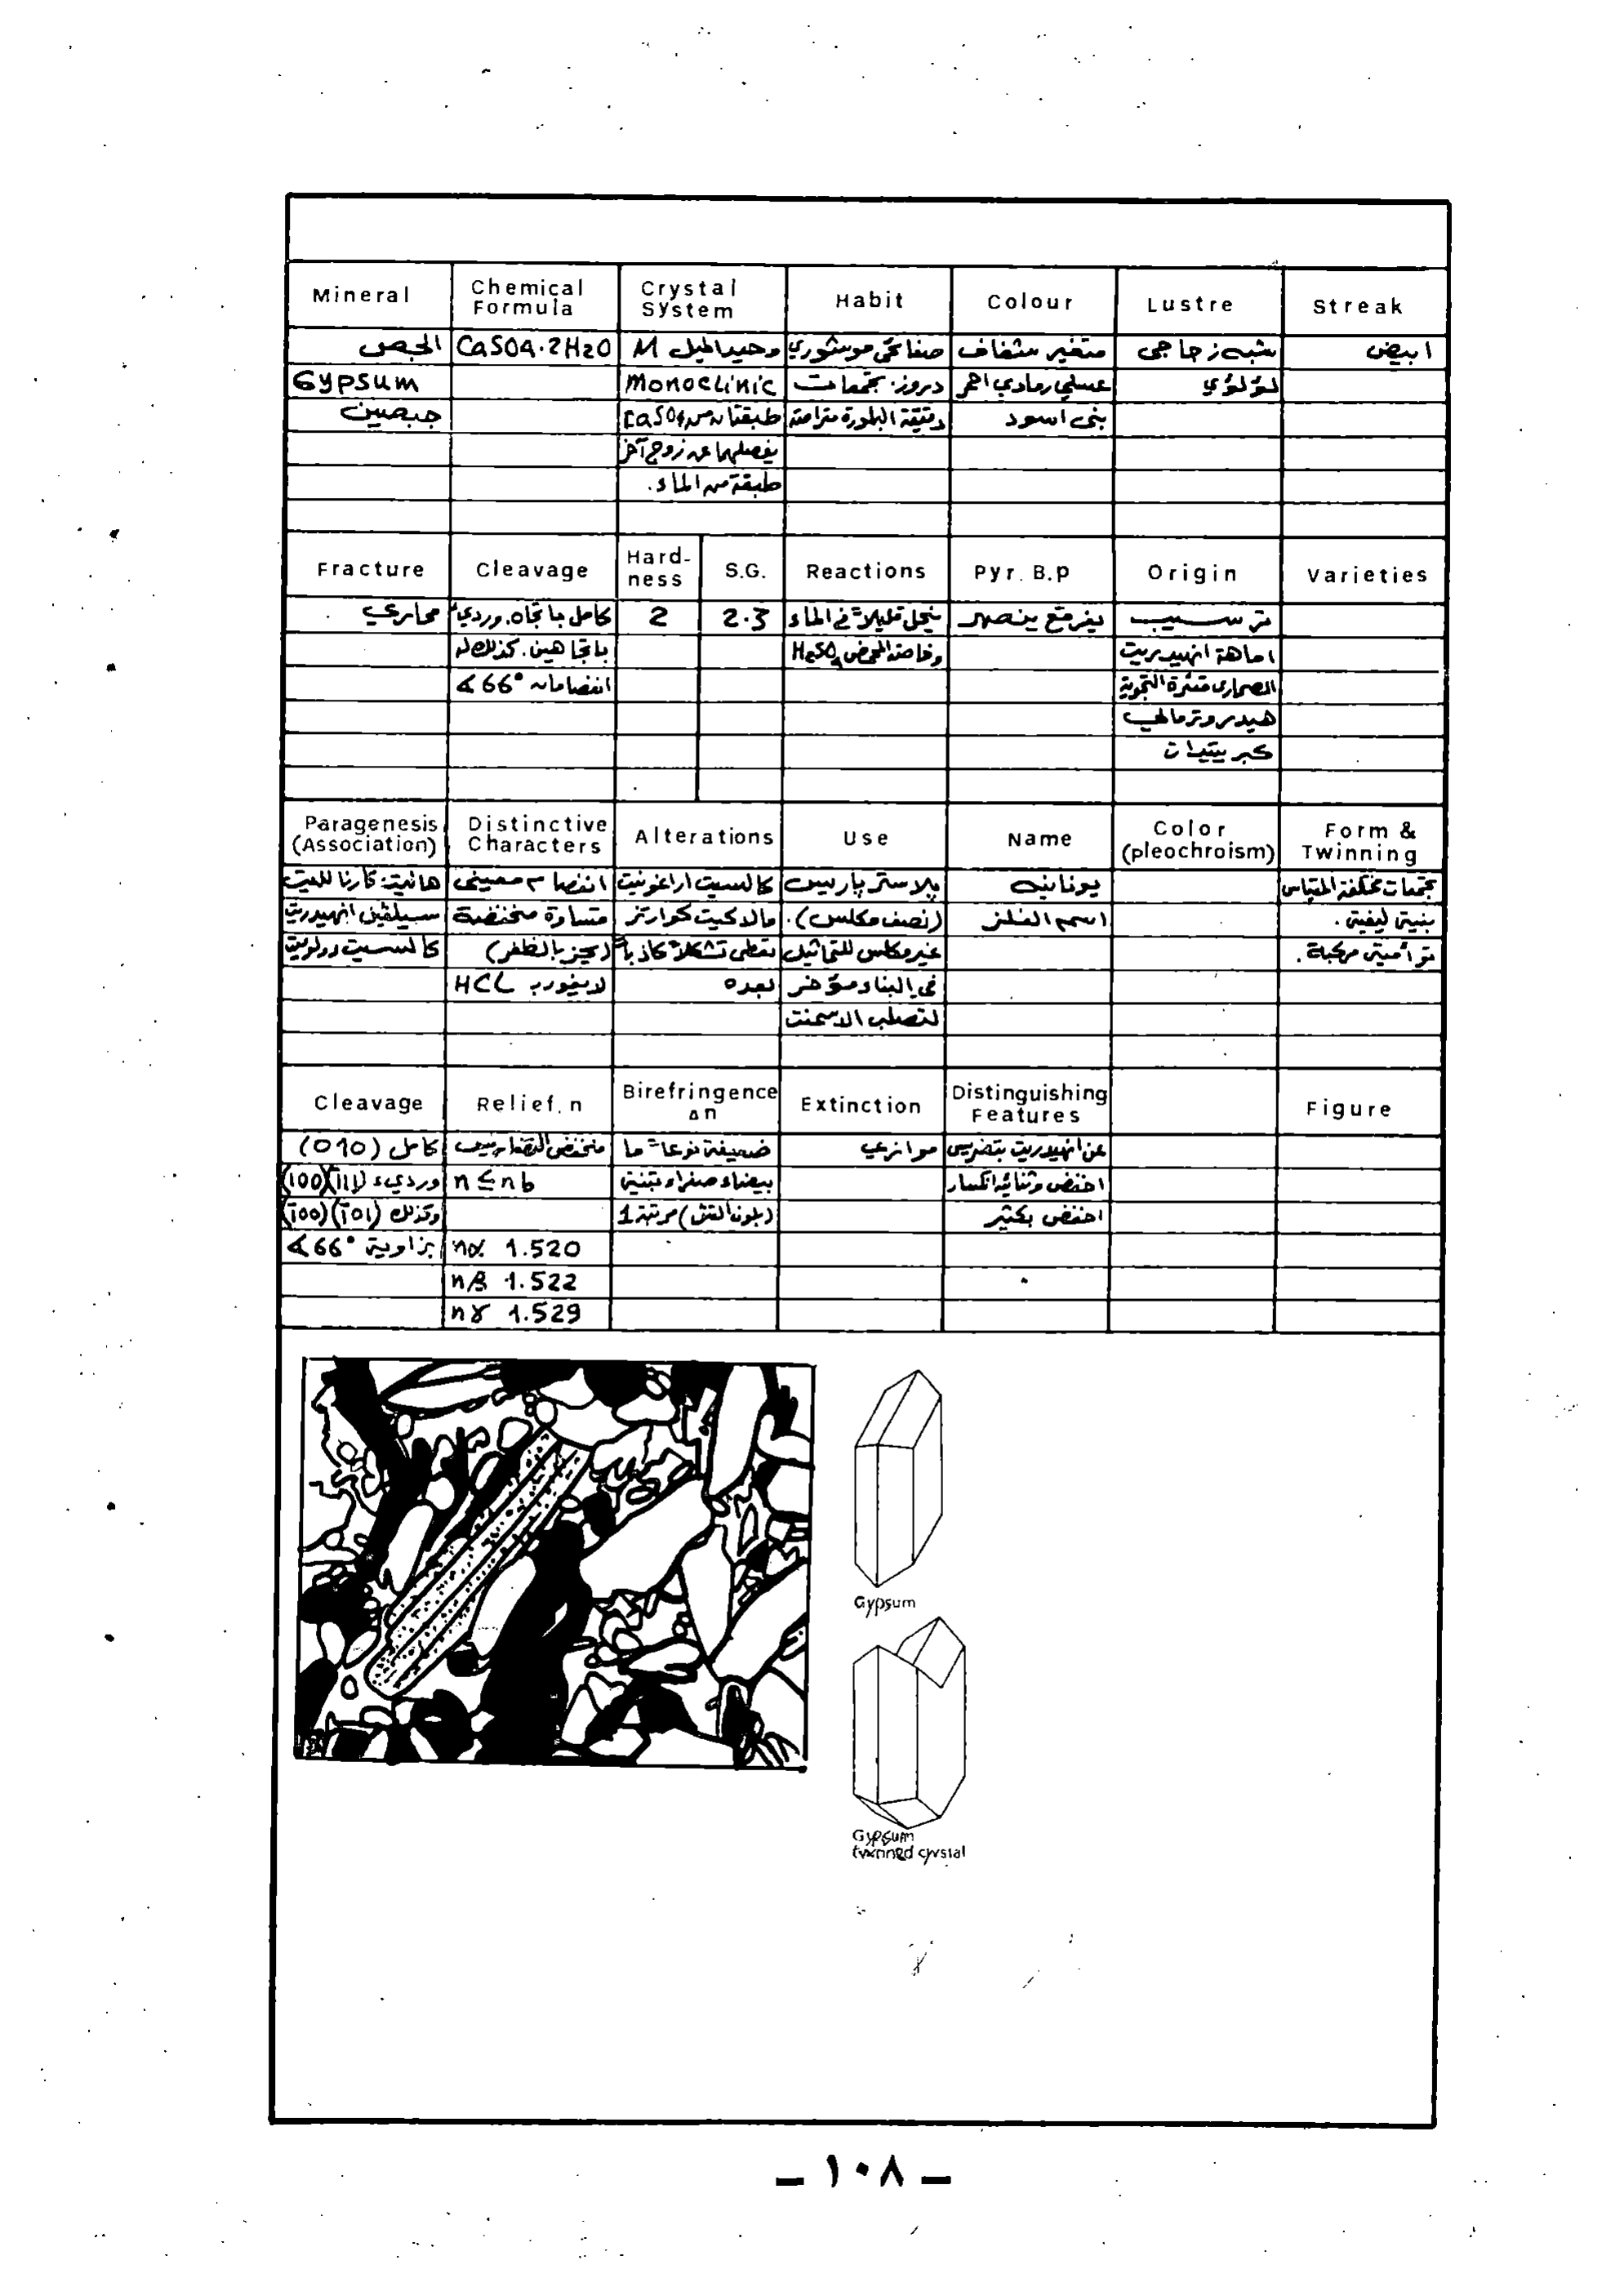 Mineral | Chemical Formula | Crystal System | Habit | Colour | Lustre | Streak
الجبص | CaSO4.2H2O | وحيد الميل M | صفائحي موشوري | متغير شفاف | شبه زجاجي | ابيض
Gypsum | | Monoclinic | دروز. تجمعات | عسلي رمادي احمر | لؤلؤي
جبصين | | طبقتان من CaSO4 | دقيقة البلورة متراصة | بني اسود
يفصلهما عن زوج آخر
طبقة من الماء.
Fracture | Cleavage | Hard-ness | S.G. | Reactions | Pyr. B.p | Origin | Varieties
محاري | كامل باتجاه. وردي | 2 | 2.3 | ينحل قليلاً في الماء | يفرقع ينصهر | ترسيب
باتجاهين. كذلك له | وخاصة الحمض H2SO4 | اماهة انهيدريت
انفصامان ∡66° | الصحارى قشرة التجوية
هيدروترمالي
كبريتيدات
Paragenesis (Association) | Distinctive Characters | Alterations | Use | Name | Color (pleochroism) | Form & Twinning
هاليت كارنالليت | انفصام معيني | كالسيت اراغونيت | بلاستر باريس | يونانية | | تجمعات مختلفة المقياس
سيلفين انهيدريت | قساوة منخفضة | مالاكيت كوارتز | (نصف مكلس). | اسم الفلز | | بنية ليفية.
كالسيت دولوميت | (يحز بالظفر) | تعطي تشكلاً كاذباً | غير مكلس للتماثيل | | | توأمية مركبة.
لا يفور بـ HCL | بعده | في البناء مؤخر
لتصلب الاسمنت
Cleavage | Relief. n | Birefringence Δn | Extinction | Distinguishing Features | | Figure
كامل (010) | منخفض التضاريس | ضعيفة نوعاً ما | موازي | عن انهيدريت بتضريس
وردي (111)(100) | n ≤ nb | بيضاء صفراء تبنية | | اخفض وثنائية انكسار
وكذلك (101)(100) | | (بلون القش) مرتبة 1 | | اخفض بكثير
بزاوية ∡66° | nα 1.520
nβ 1.522
nγ 1.529
Gypsum
Gypsum
twinned crystal
– ١٠٨ –